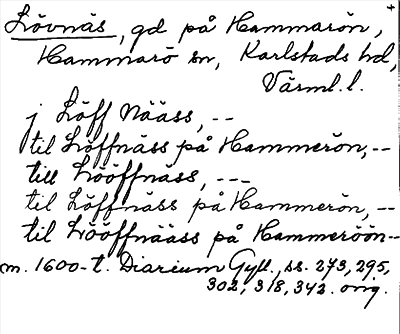 Lövnäs, gd på Hammarön,
Hammarö sn, Karlstads hd,
Värml. l.
j Löff Nääss, --
til Löffnäss på Hammerön, --
till Lööffnäss, ---
til Löffnäss på Hammerön, --
til Lööffnääss på Hammeröön--
m. 1600-t. Diarium Gyll., ss. 273, 295,
302, 318, 342. orig.